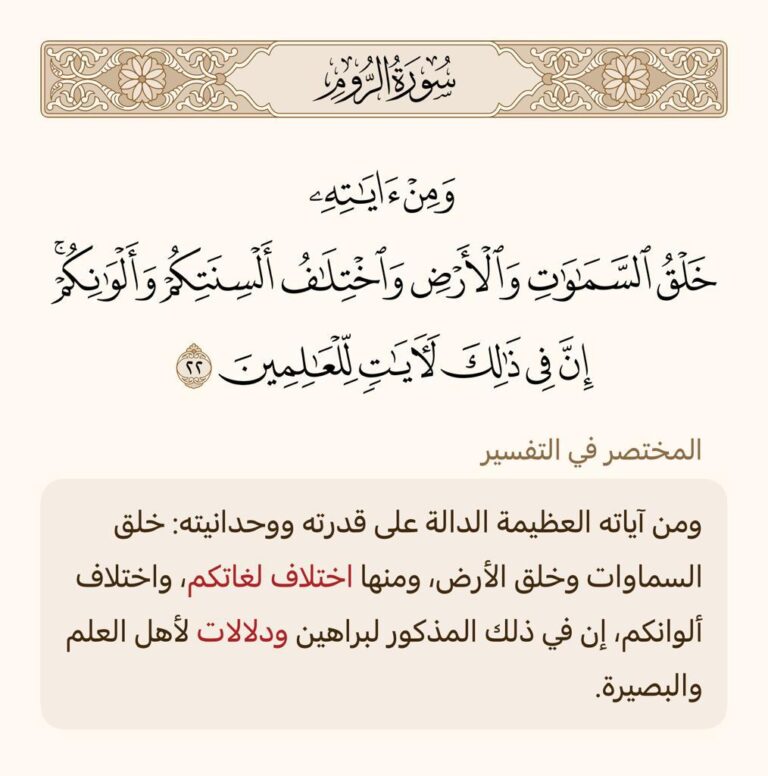 سُورَةُ الرُّومِ
وَمِنْ ءَايَـٰتِهِۦ
خَلْقُ ٱلسَّمَـٰوَٰتِ وَٱلْأَرْضِ وَٱخْتِلَـٰفُ أَلْسِنَتِكُمْ وَأَلْوَٰنِكُمْ ۚ
إِنَّ فِى ذَٰلِكَ لَـَٔايَـٰتٍ لِّلْعَـٰلِمِينَ ٢٢
المختصر في التفسير
ومن آياته العظيمة الدالة على قدرته ووحدانيته: خلق
السماوات وخلق الأرض، ومنها اختلاف لغاتكم، واختلاف
ألوانكم، إن في ذلك المذكور لبراهين ودلالات لأهل العلم
والبصيرة.